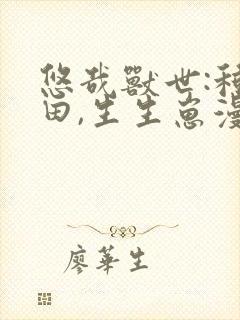 悠哉獸世:種
田,生生崽漫
廖華生